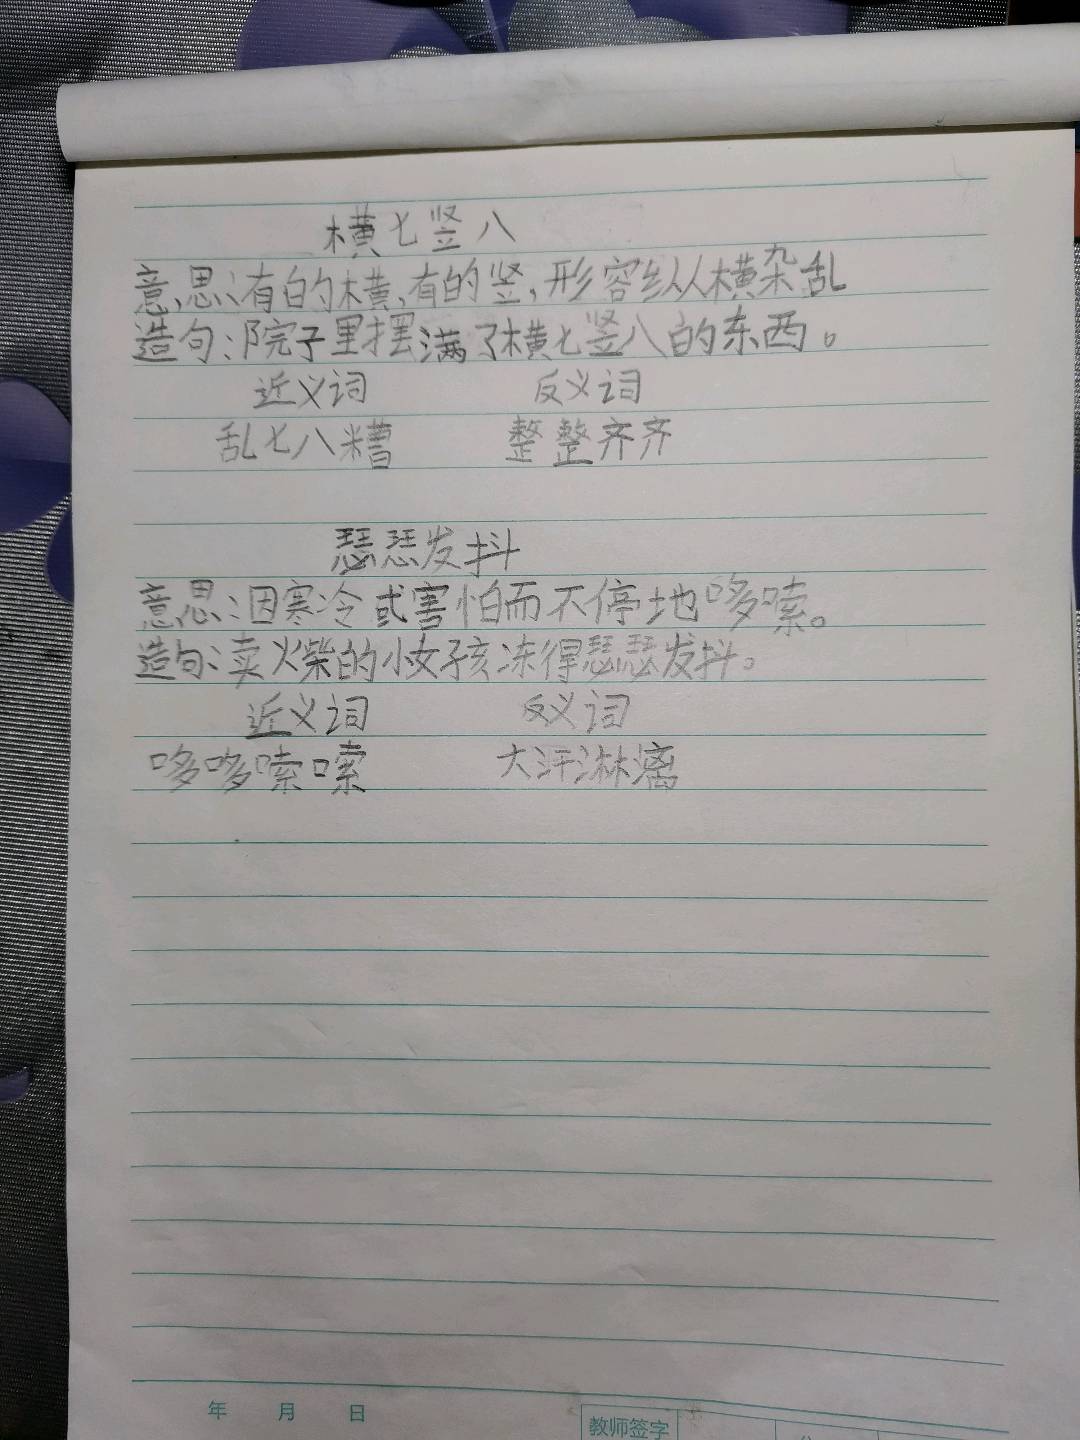 横七竖八
意思:有的横,有的竖,形容纵横杂乱
造句:院子里摆满了横七竖八的东西。
近义词 反义词
乱七八糟 整整齐齐
瑟瑟发抖
意思:因寒冷或害怕而不停地哆嗦。
造句:卖火柴的小女孩冻得瑟瑟发抖。
近义词 反义词
哆哆嗦嗦 大汗淋漓
年 月 日
教师签字